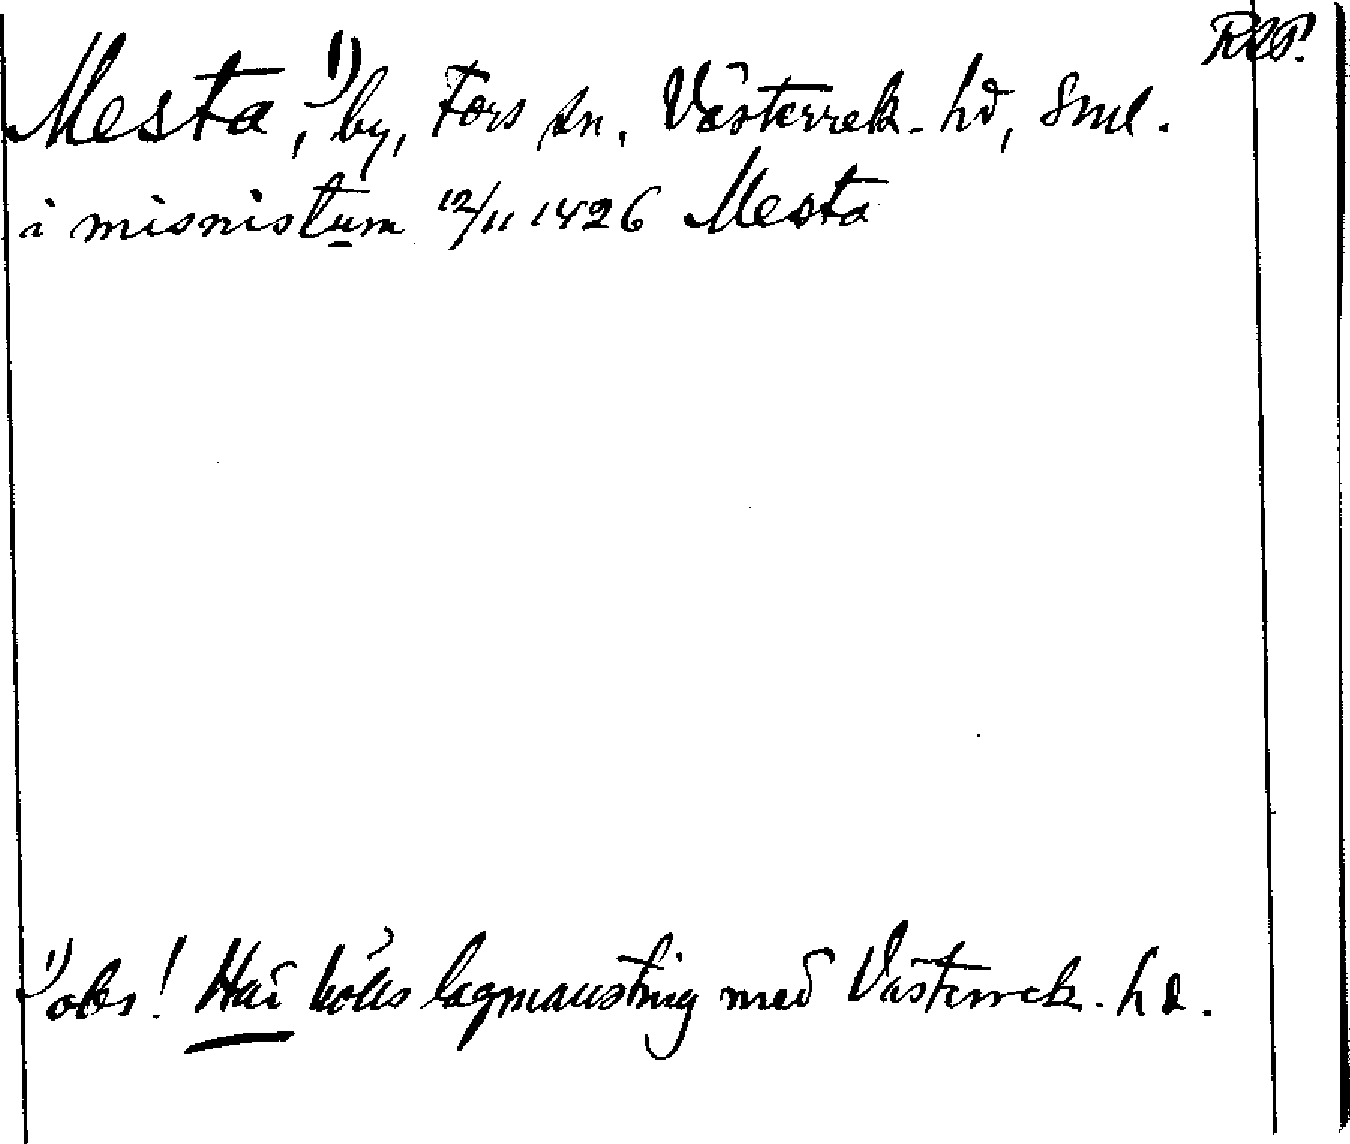 Rep.
Mesta,¹⁾ by, Fors sn. Västerrek. hd, Sml.
i misnistum 12/11 1426 Mesta
¹⁾ obs! Här hölls lagmansting med Västerrek. hd.